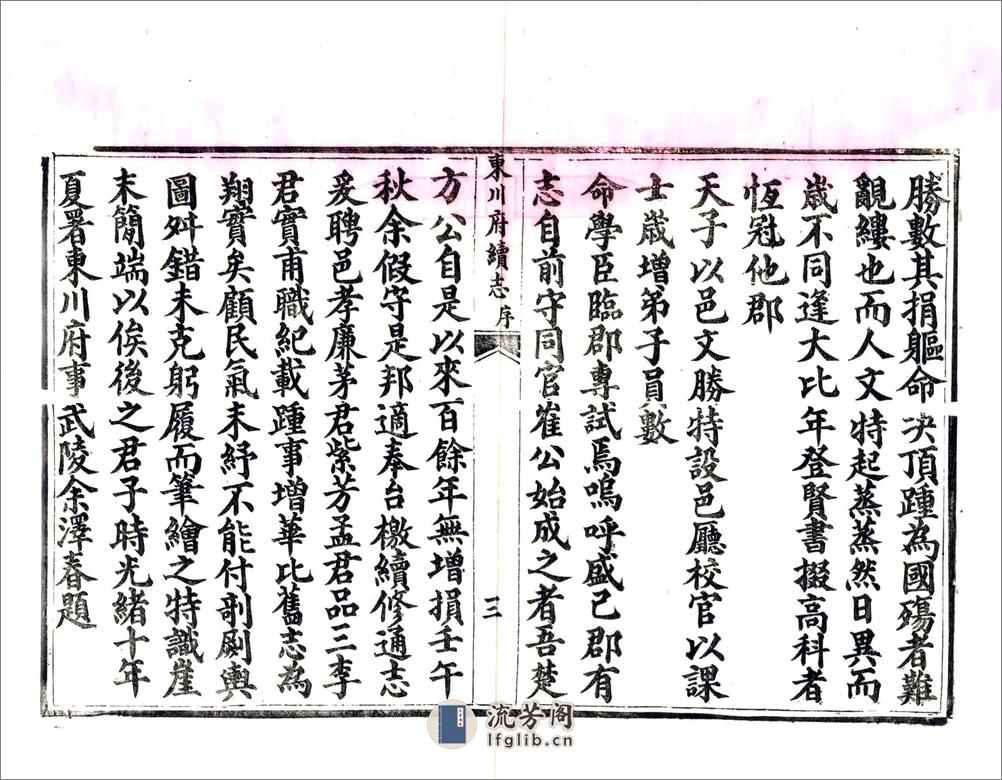 勝數其捐軀命決頂踵為國殤者難
覼縷也而人文特起蒸蒸然日異而
歲不同逢大比年登賢書掇高科者
恆冠他郡
天子以邑文勝特設邑廳校官以課
士歲增弟子員數
命學臣臨郡專試焉嗚呼盛已郡有
志自前守同官崔公始成之者吾楚
東川府續志 序
三
方公自是以來百餘年無增損壬午
秋余假守是邦適奉台檄續修通志
爰聘邑孝廉茅君紫芳孟君品三李
君實甫職紀載踵事增華比舊志為
翔實矣顧民氣未紓不能付剞劂輿
圖舛錯未克躬履而筆繪之特識崖
末簡端以俟後之君子時光緒十年
夏署東川府事武陵余澤春題
流芳阁
lfglib.cn